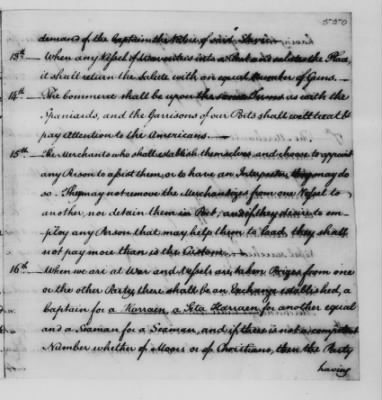 demand of the Captain the Value of said Slaves.
13th. When any Vessel of War enters into a Port and salutes the Place,
it shall return the Salute with an equal Number of Guns.
14th. The Commerce shall be upon the same Terms as with the
Spaniards, and the Garrisons of our Ports shall well treat &
pay attention to the Americans.
15th. The Merchants who shall establish themselves and choose to appoint
any Person to assist them, or to have an Interpreter, they may do
so. They may not remove the Merchandizes from one Vessel to
another, nor detain them in Port, and if they desire to em-
ploy any Person that may help them to load, they shall
not pay more than is the Custom.
16th. When we are at War and Vessels are taken Prizes from one
or the other Party, there shall be an Exchange established, a
Captain for a Karraen, a Sita Harraen for another equal
and a Seaman for a Seaman, and if there is not a competent
Number whether of Moors or of Christians, then the Party
having